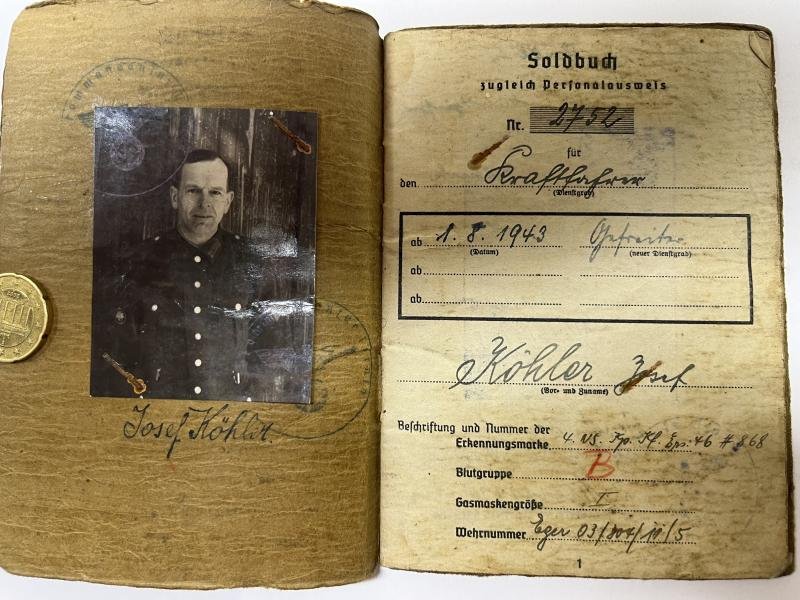 Josef Köhler.
Soldbuch
zugleich Personalausweis
Nr. 2752
für
den Kraftfahrer
(Dienstgrad)
ab 1.8.1943 Gefreiter
(Datum) (neuer Dienstgrad)
ab
ab
Köhler Josef
(Vor- und Zuname)
Beschriftung und Nummer der
Erkennungsmarke 4. Kp. Kf. Ers. 46 # 868
Blutgruppe B
Gasmaskengröße I
Wehrnummer Eger 03/
1